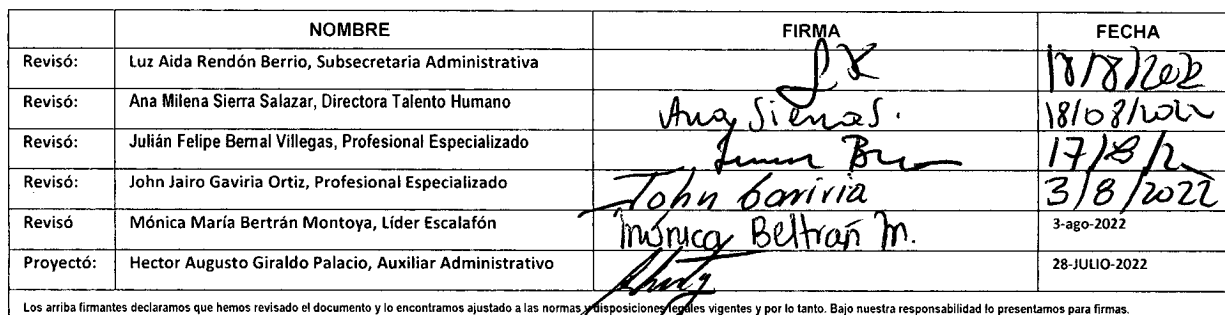 NOMBRE FIRMA FECHA
Revisó: Luz Aida Rendón Berrio, Subsecretaria Administrativa 18/8/2022
Revisó: Ana Milena Sierra Salazar, Directora Talento Humano Ana Sierra S. 18/08/2022
Revisó: Julián Felipe Bernal Villegas, Profesional Especializado 17/8/2
Revisó: John Jairo Gaviria Ortiz, Profesional Especializado John Gaviria 3/8/2022
Revisó Mónica María Bertrán Montoya, Líder Escalafón Mónica Beltrán M. 3-ago-2022
Proyectó: Hector Augusto Giraldo Palacio, Auxiliar Administrativo 28-JULIO-2022
Los arriba firmantes declaramos que hemos revisado el documento y lo encontramos ajustado a las normas y disposiciones legales vigentes y por lo tanto. Bajo nuestra responsabilidad lo presentamos para firmas.